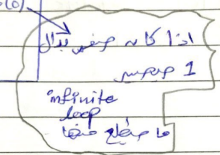 (0)
اذا كانه صفر بدال
1 حيصير
infinite
loop
ما حيطلع منها